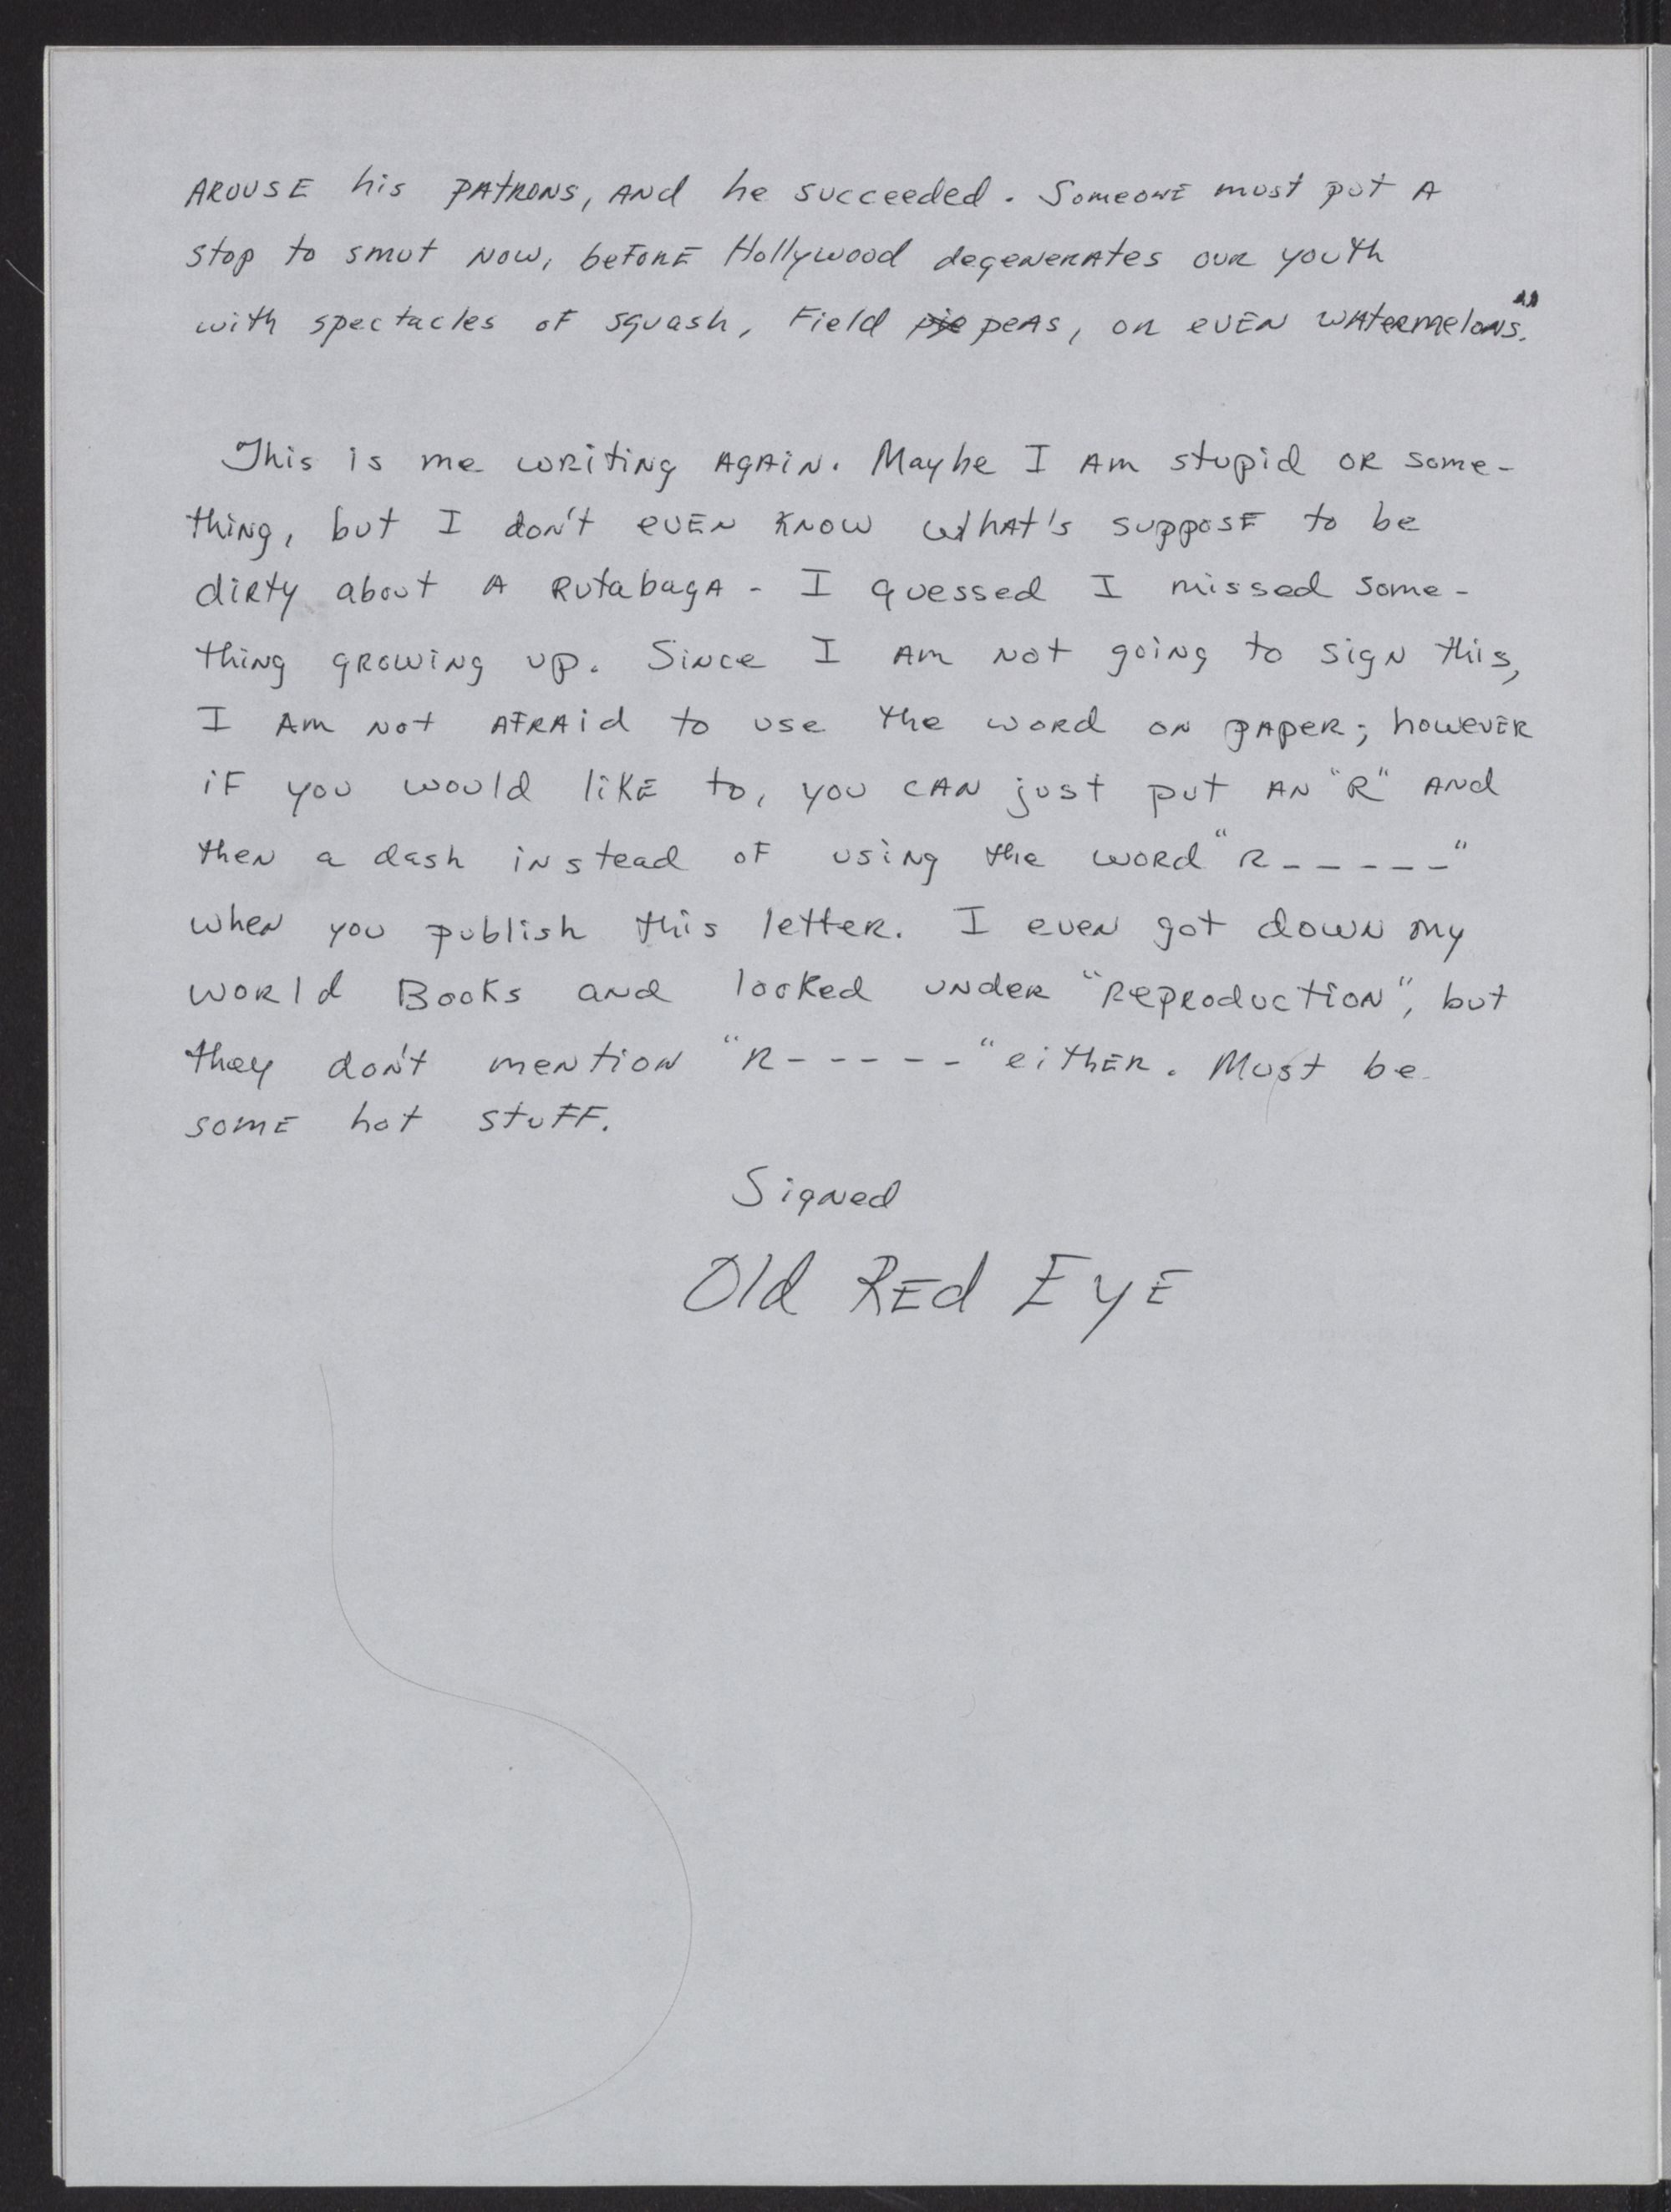 AROUSE his PATRONS, AND he succeeded. Someone must put A
stop to smut NOW, before Hollywood degenerates our youth
with spectacles of squash, Field pie peas, or even watermelons."
This is me writing AGAIN. Maybe I AM stupid OR some-
thing, but I don't even know what's suppose to be
dirty about A Rutabaga - I quessed I missed some-
thing growing up. Since I AM not going to sign this,
I AM not AFRAid to use the word on paper; however
if you would like to, you CAN just put AN "R" AND
then a dash instead of using the word "R-----"
when you publish this letter. I even got down my
World Books and looked under "Reproduction", but
they don't mention "R-----" either. Must be
some hot stuff.
Signed
Old Red Eye